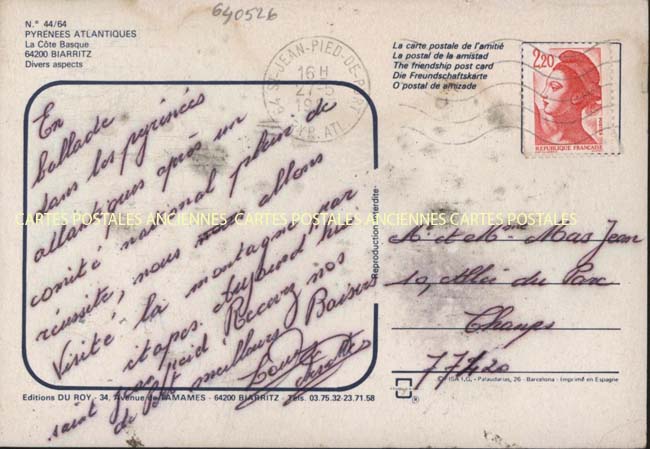 640526
N.° 44/64
PYRENEES ATLANTIQUES
La Côte Basque
64200 BIARRITZ
Divers aspects
ST-JEAN-PIED-DE-PORT
16 H
27-5
PYR. ATL.
La carte postale de l'amitié
La postal de la amistad
The friendship post card
Die Freundschaftskarte
O postal de amizade
2,20
REPUBLIQUE FRANÇAISE
En
ballade
dans les pyrénées
atlantiques après un
comité national plein de
réussite, nous allons
Visité la montagne par
étapes. Aujourd'hui
saint jean pied de port
Recevez nos
meilleurs Baisers
CARTES POSTALES ANCIENNES CARTES POSTALES ANCIENNES CARTES POSTALES ANCIENNES
Reproduction interdite
Mr et Mme Mas Jean
10, Allée du Parc
Champs
77420
Editions DU ROY - 34, Avenue de LAMAMES - 64200 BIARRITZ - Tels. 03.75.32-23.71.58
Palaudarias, 26 - Barcelona - Imprimé en Espagne